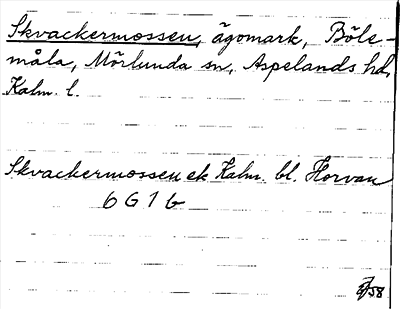 Skvackermossen, ägomark, Böle-
måla, Mörlunda sn, Aspelands hd,
Kalm. l.
Skvackermossen ek Kalm. bl. Horvan
6 G 1 b
58